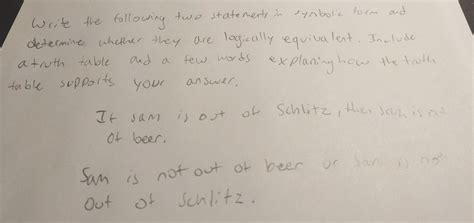 Write the following two statements in symbolic form and
determine whether they are logically equivalent. Include
a truth table and a few words explaning how the truth
table supports your answer.
If Sam is out of Schlitz, then Sam is not
of beer.
Sam is not out of beer or Sam is not
out of Schlitz.